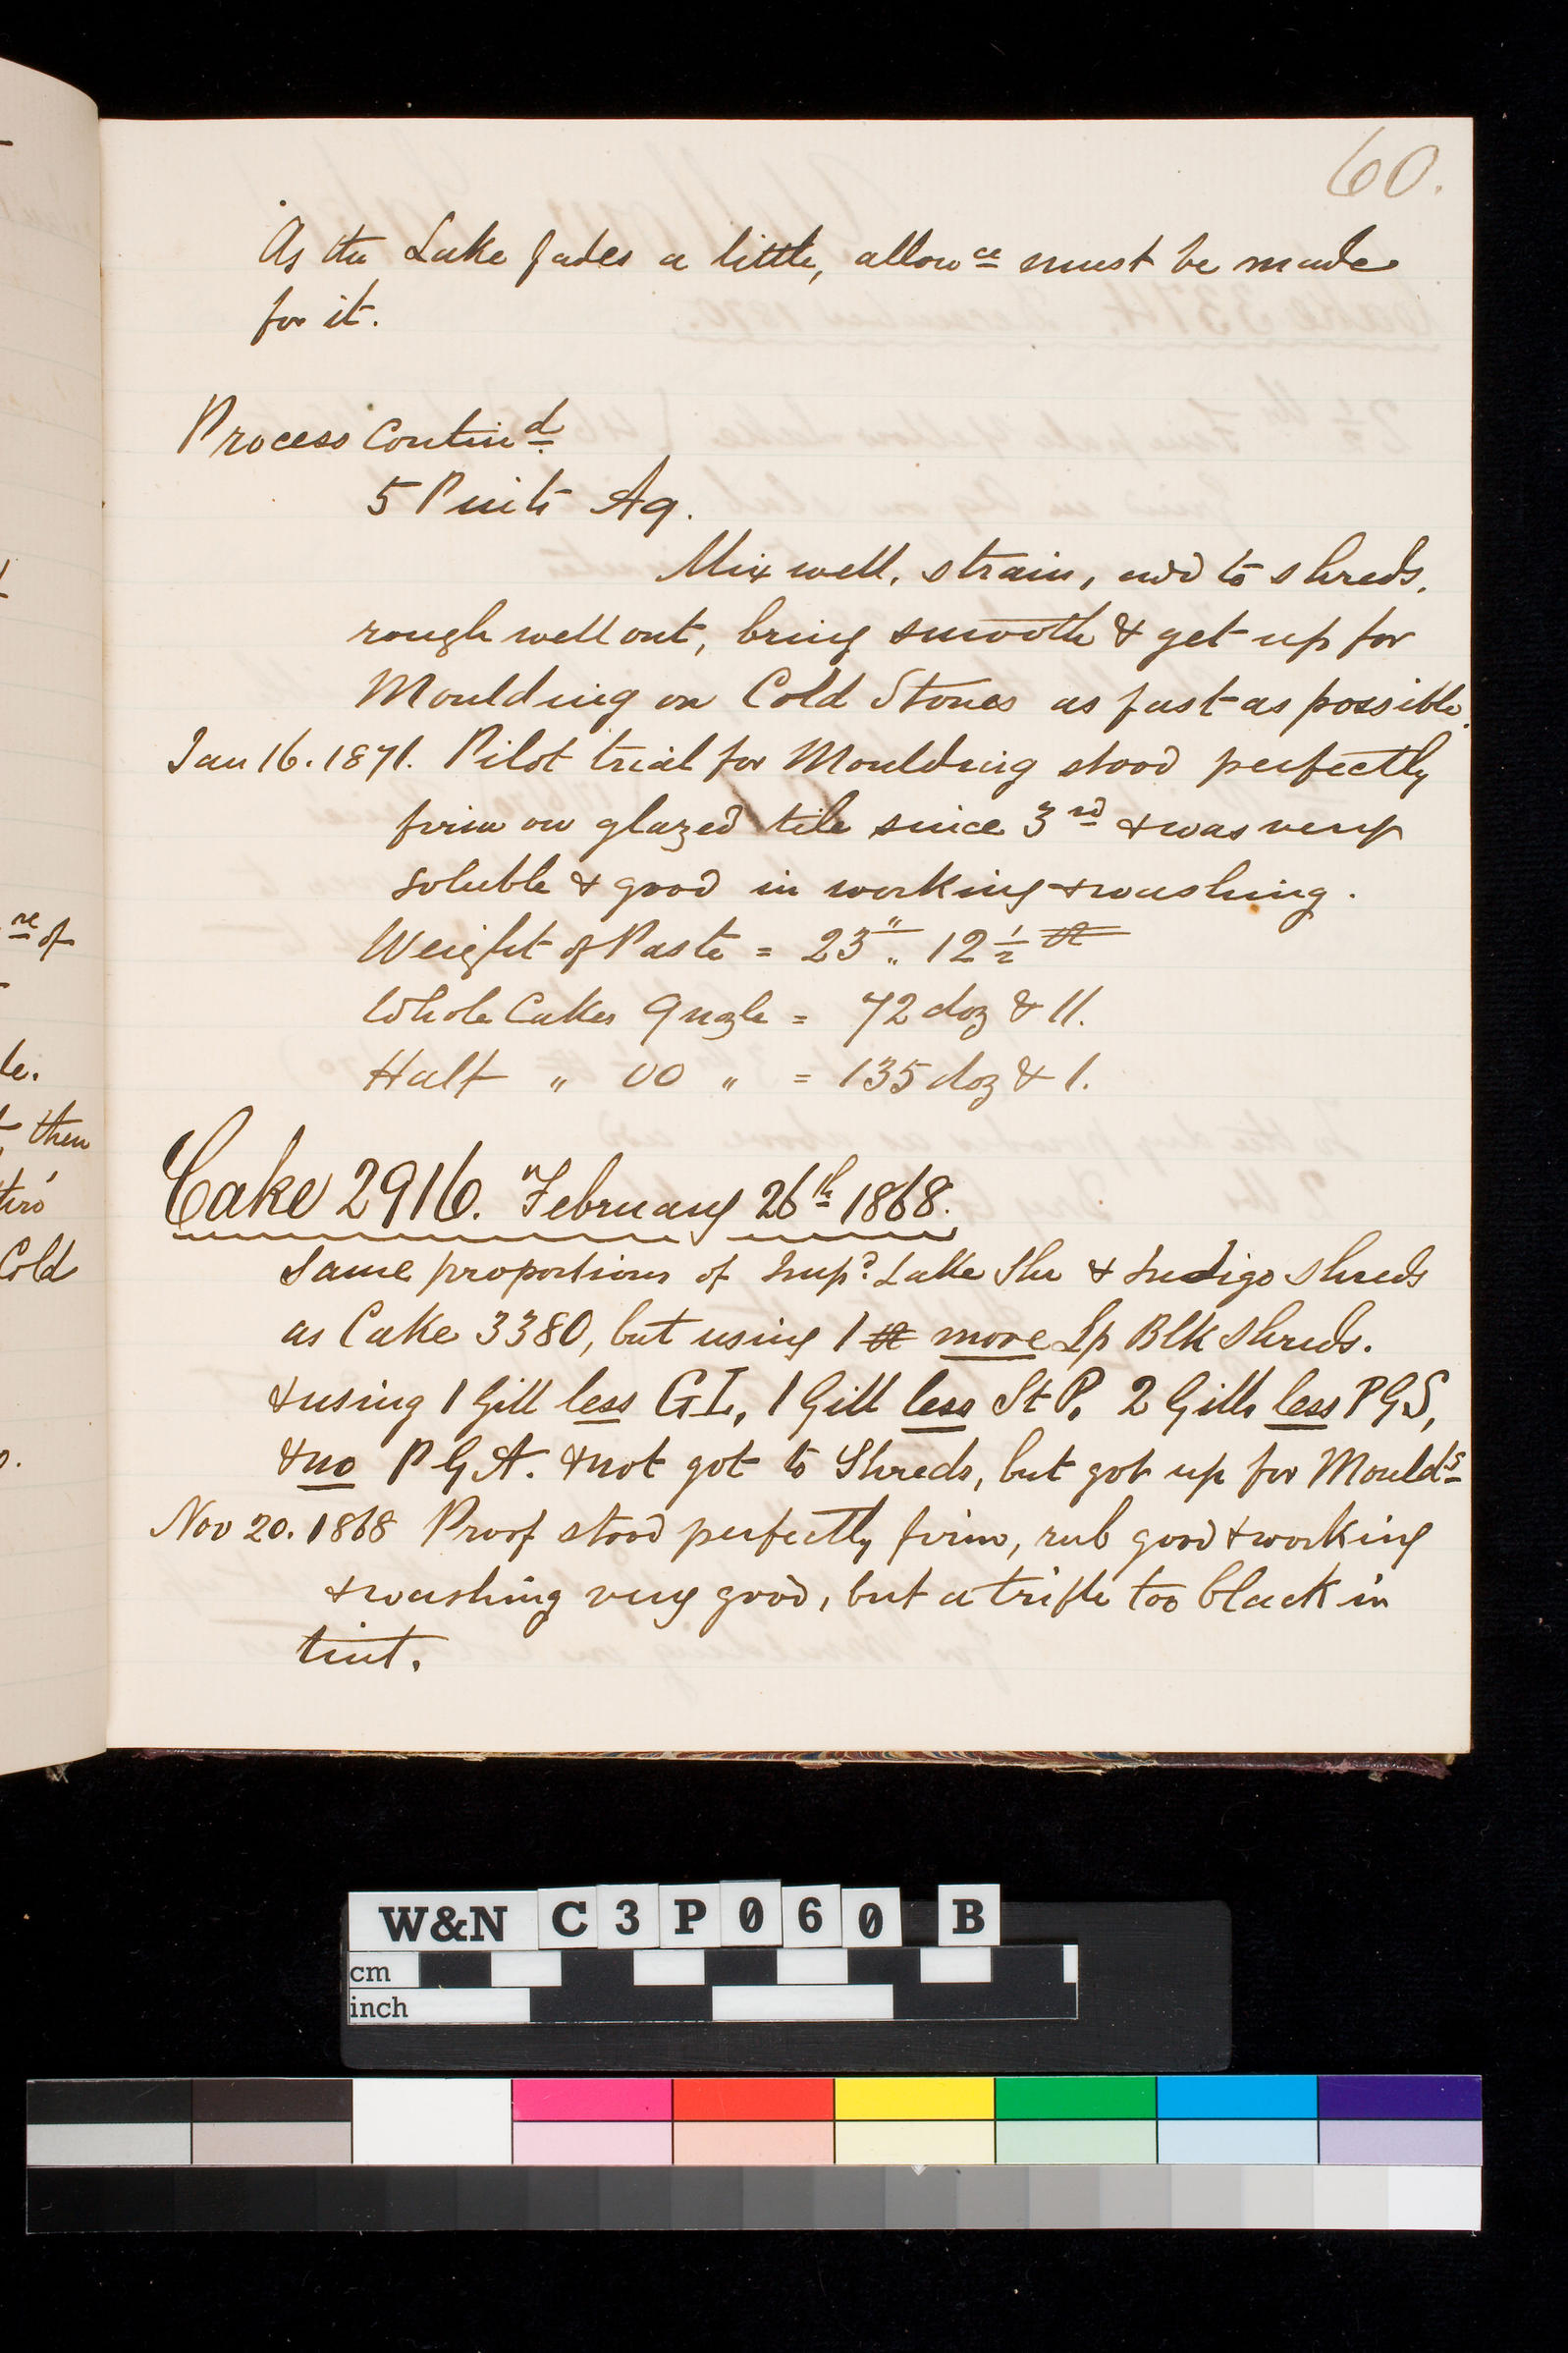 60.
As the Lake fades a little, allowce must be made
for it.
Process Contind
5 Pints Aq.
Mix well, strain, add to shreds,
rough well out, bring smooth & get up for
Moulding on Cold Stones as fast as possible.
Jan 16. 1871. Pilot trial for Moulding stood perfectly
firm on glazed tile since 3rd & was very
soluble & good in working & washing.
Weight of Paste = 23" .. 12 1/2 lb
Whole Cakes 9 = 72 doz & 11.
Half " 00 " = 135 doz & 1.
Cake 2916. February 26th 1868.
Same proportions of Impd Lake Shr & Indigo Shreds
as Cake 3380, but using 1 lb more Lp Blk Shreds.
& using 1 Gill less GL, 1 Gill less St P. 2 Gills less PGS,
& no P G A. & not got to Shreds, but got up for Moulds
Nov 20. 1868 Proof stood perfectly firm, rub good & working
& washing very good, but a trifle too black in
tint.
re of
le.
then
Cold
W&N C3P060 B
cm
inch